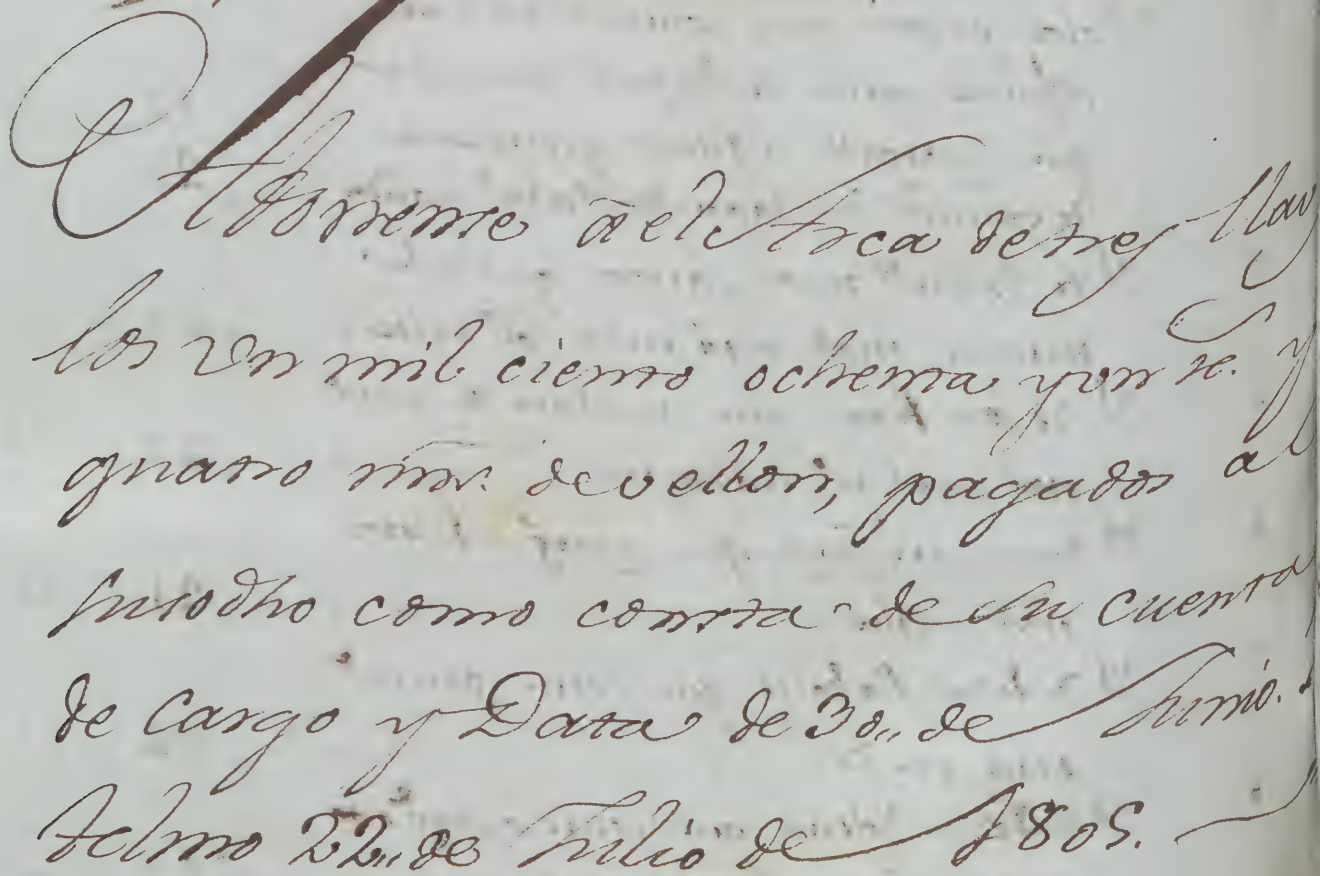 Abonense â el Arca de tres llav
los un mil ciento ochenta y un rs. y
quatro mrs. de vellon, pagados al
susodho como consta de su cuenta
de Cargo y Data de 30,, de Junio.
telmo 22,, de Julio de 1805.